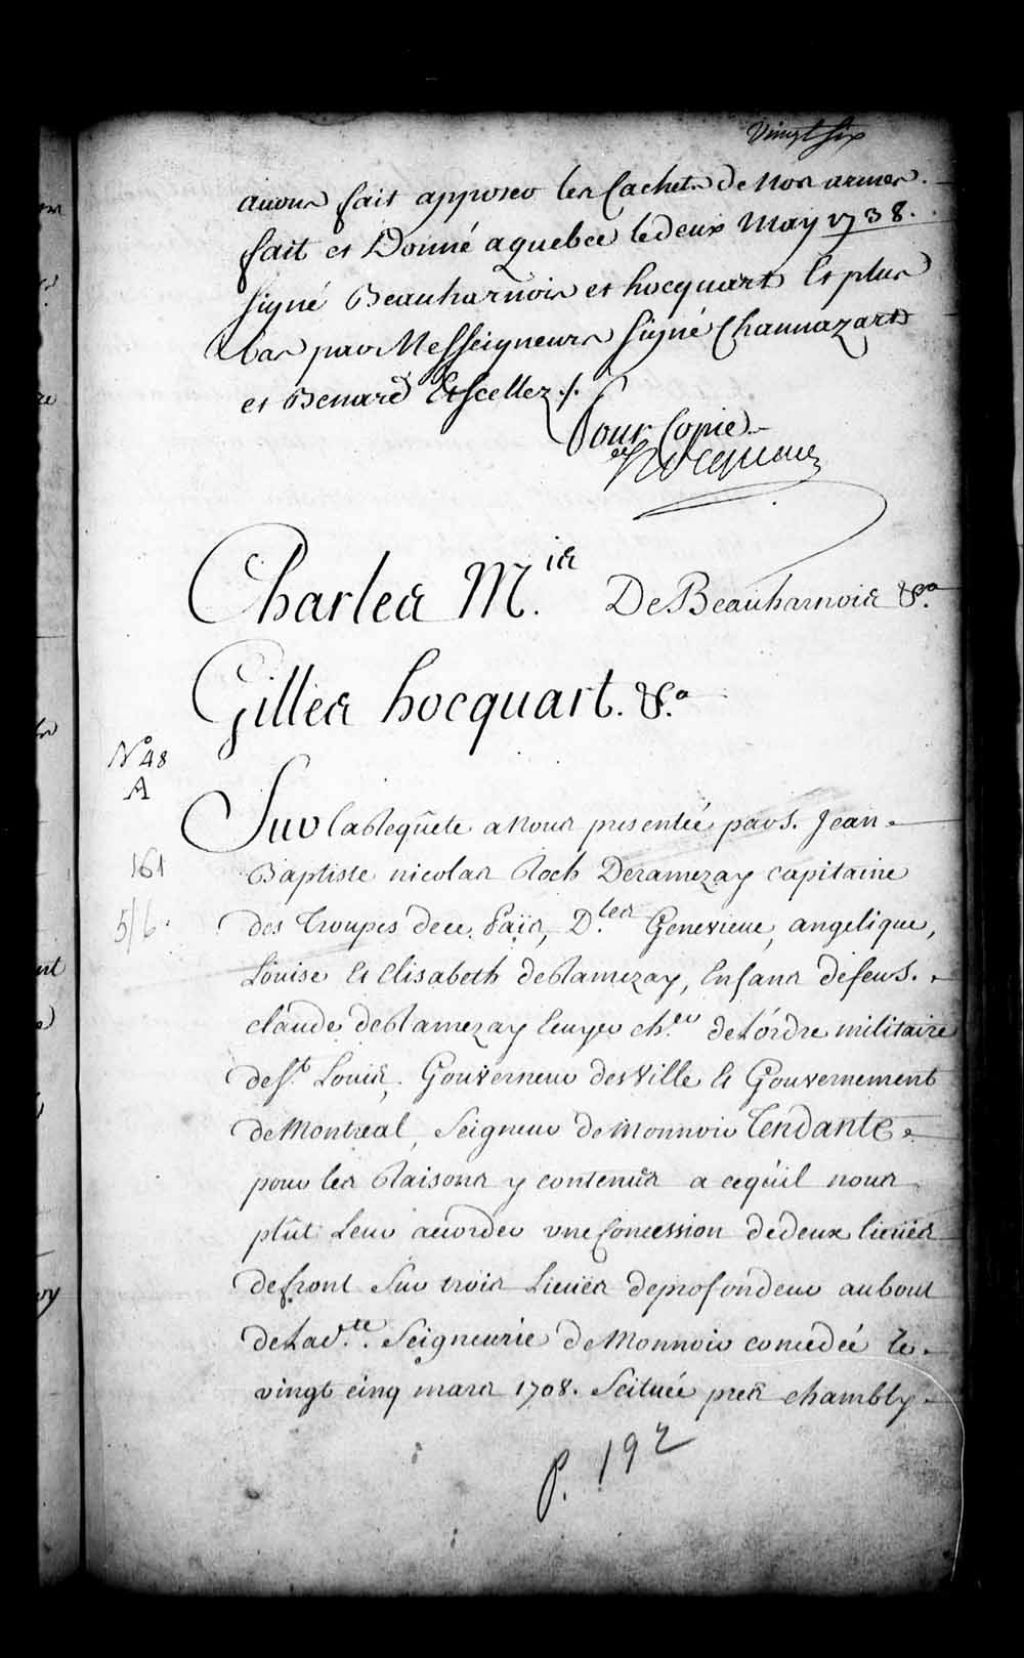 Vingt six
avons fait apposer les Cachets de Nos armes.
fait et Donné a quebec le deux May 1738.
signé Beauharnois et hocquart Et plus
bas par Messeigneurs signé Chaunazart
et Benard Et scellez ./.
Pour Copie
hocquart
Charles M.is De Beauharnois &c.a
Gilles hocquart. &.a
N.o 48
A
Sur la Requête a Nous presentée par S. Jean
161
Baptiste nicolas Roch Deramezay capitaine
5/6.
des troupes de ce Païs, D.lles Genevieve, angelique,
Loüise Et Elisabeth de Ramezay, Enfans de feu S.
claude de Ramezay Ecuyer ch.er de L'ordre militaire
de S.t Louis, Gouverneur des Ville Et Gouvernement
de Montreal, Seigneur de Monnoir Tendante
pour les Raisons y contenües a ce qu'il nous
plût Leur accorder une Concession de deux lieües
de front sur trois Lieües de profondeur au bout
de Lad.te Seigneurie de Monnoir concedée le
vingt cinq mars 1708. Scituée prés chambly
p. 192